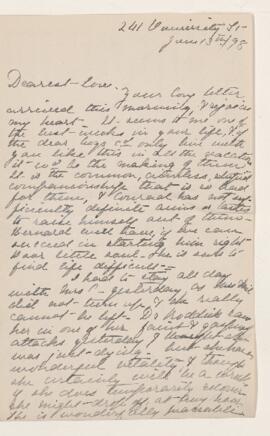 241 University St-
Jan 13th/98
Dearest love.
Your long letter
arrived this morning, & rejoices
my heart. It seems to me one of
the best in your life, & if
the dear boys cd only live with
you like this in all the vacations
it wd be the making of them.
It is the common, aimless,
companionship that is so bad
for them, & Conrad has not
definite aims or tastes
to raise himself out of them.
Bernard will have, if we can
succeed in starting him right.
Poor little soul. He is sure to
find life difficult.
I had to stay all day
with Mrs yesterday as
did not turn up & she really
cannot be left. Dr Roddick saw
her in one of her faint & gasping
attacks yesterday & thought she
was just dying. But she has
wonderful vitality & though
she certainly will be a
if she does temporarily recover
she might drop off at any hour
She is wonderfully